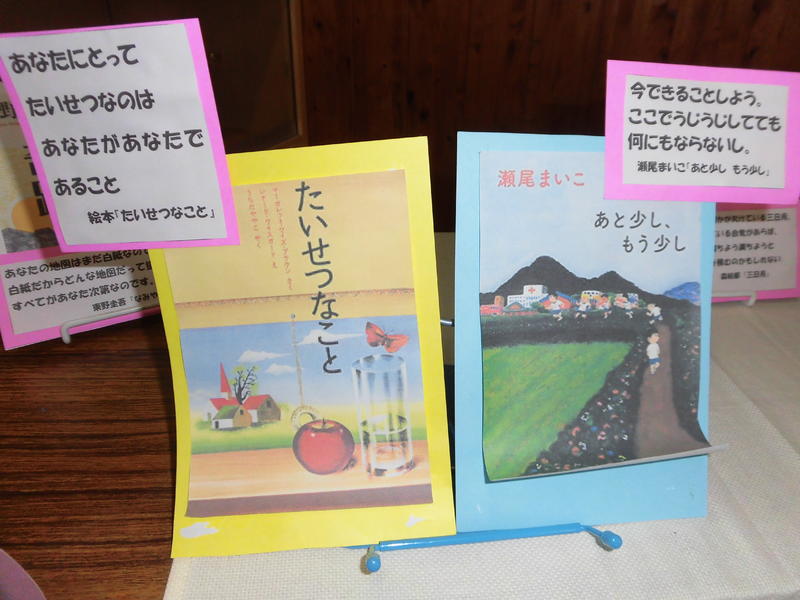 あなたにとって
たいせつなのは
あなたがあなたで
あること
絵本「たいせつなこと」
あなたの地図はまだ白紙なの
白紙だからどんな地図だって
すべてがあなた次第なのです
東野圭吾「なみや
たいせつなこと
マーガレット・ワイズ・ブラウン さく
レナード・ワイスガード え
うちだややこ やく
瀬尾まいこ
あと少し、
もう少し
今できることしよう。
ここでうじうじしてても
何にもならないし。
瀬尾まいこ「あと少し もう少し」
が欠けている三日月。
いる会社があらば、
ちよう満ちようと